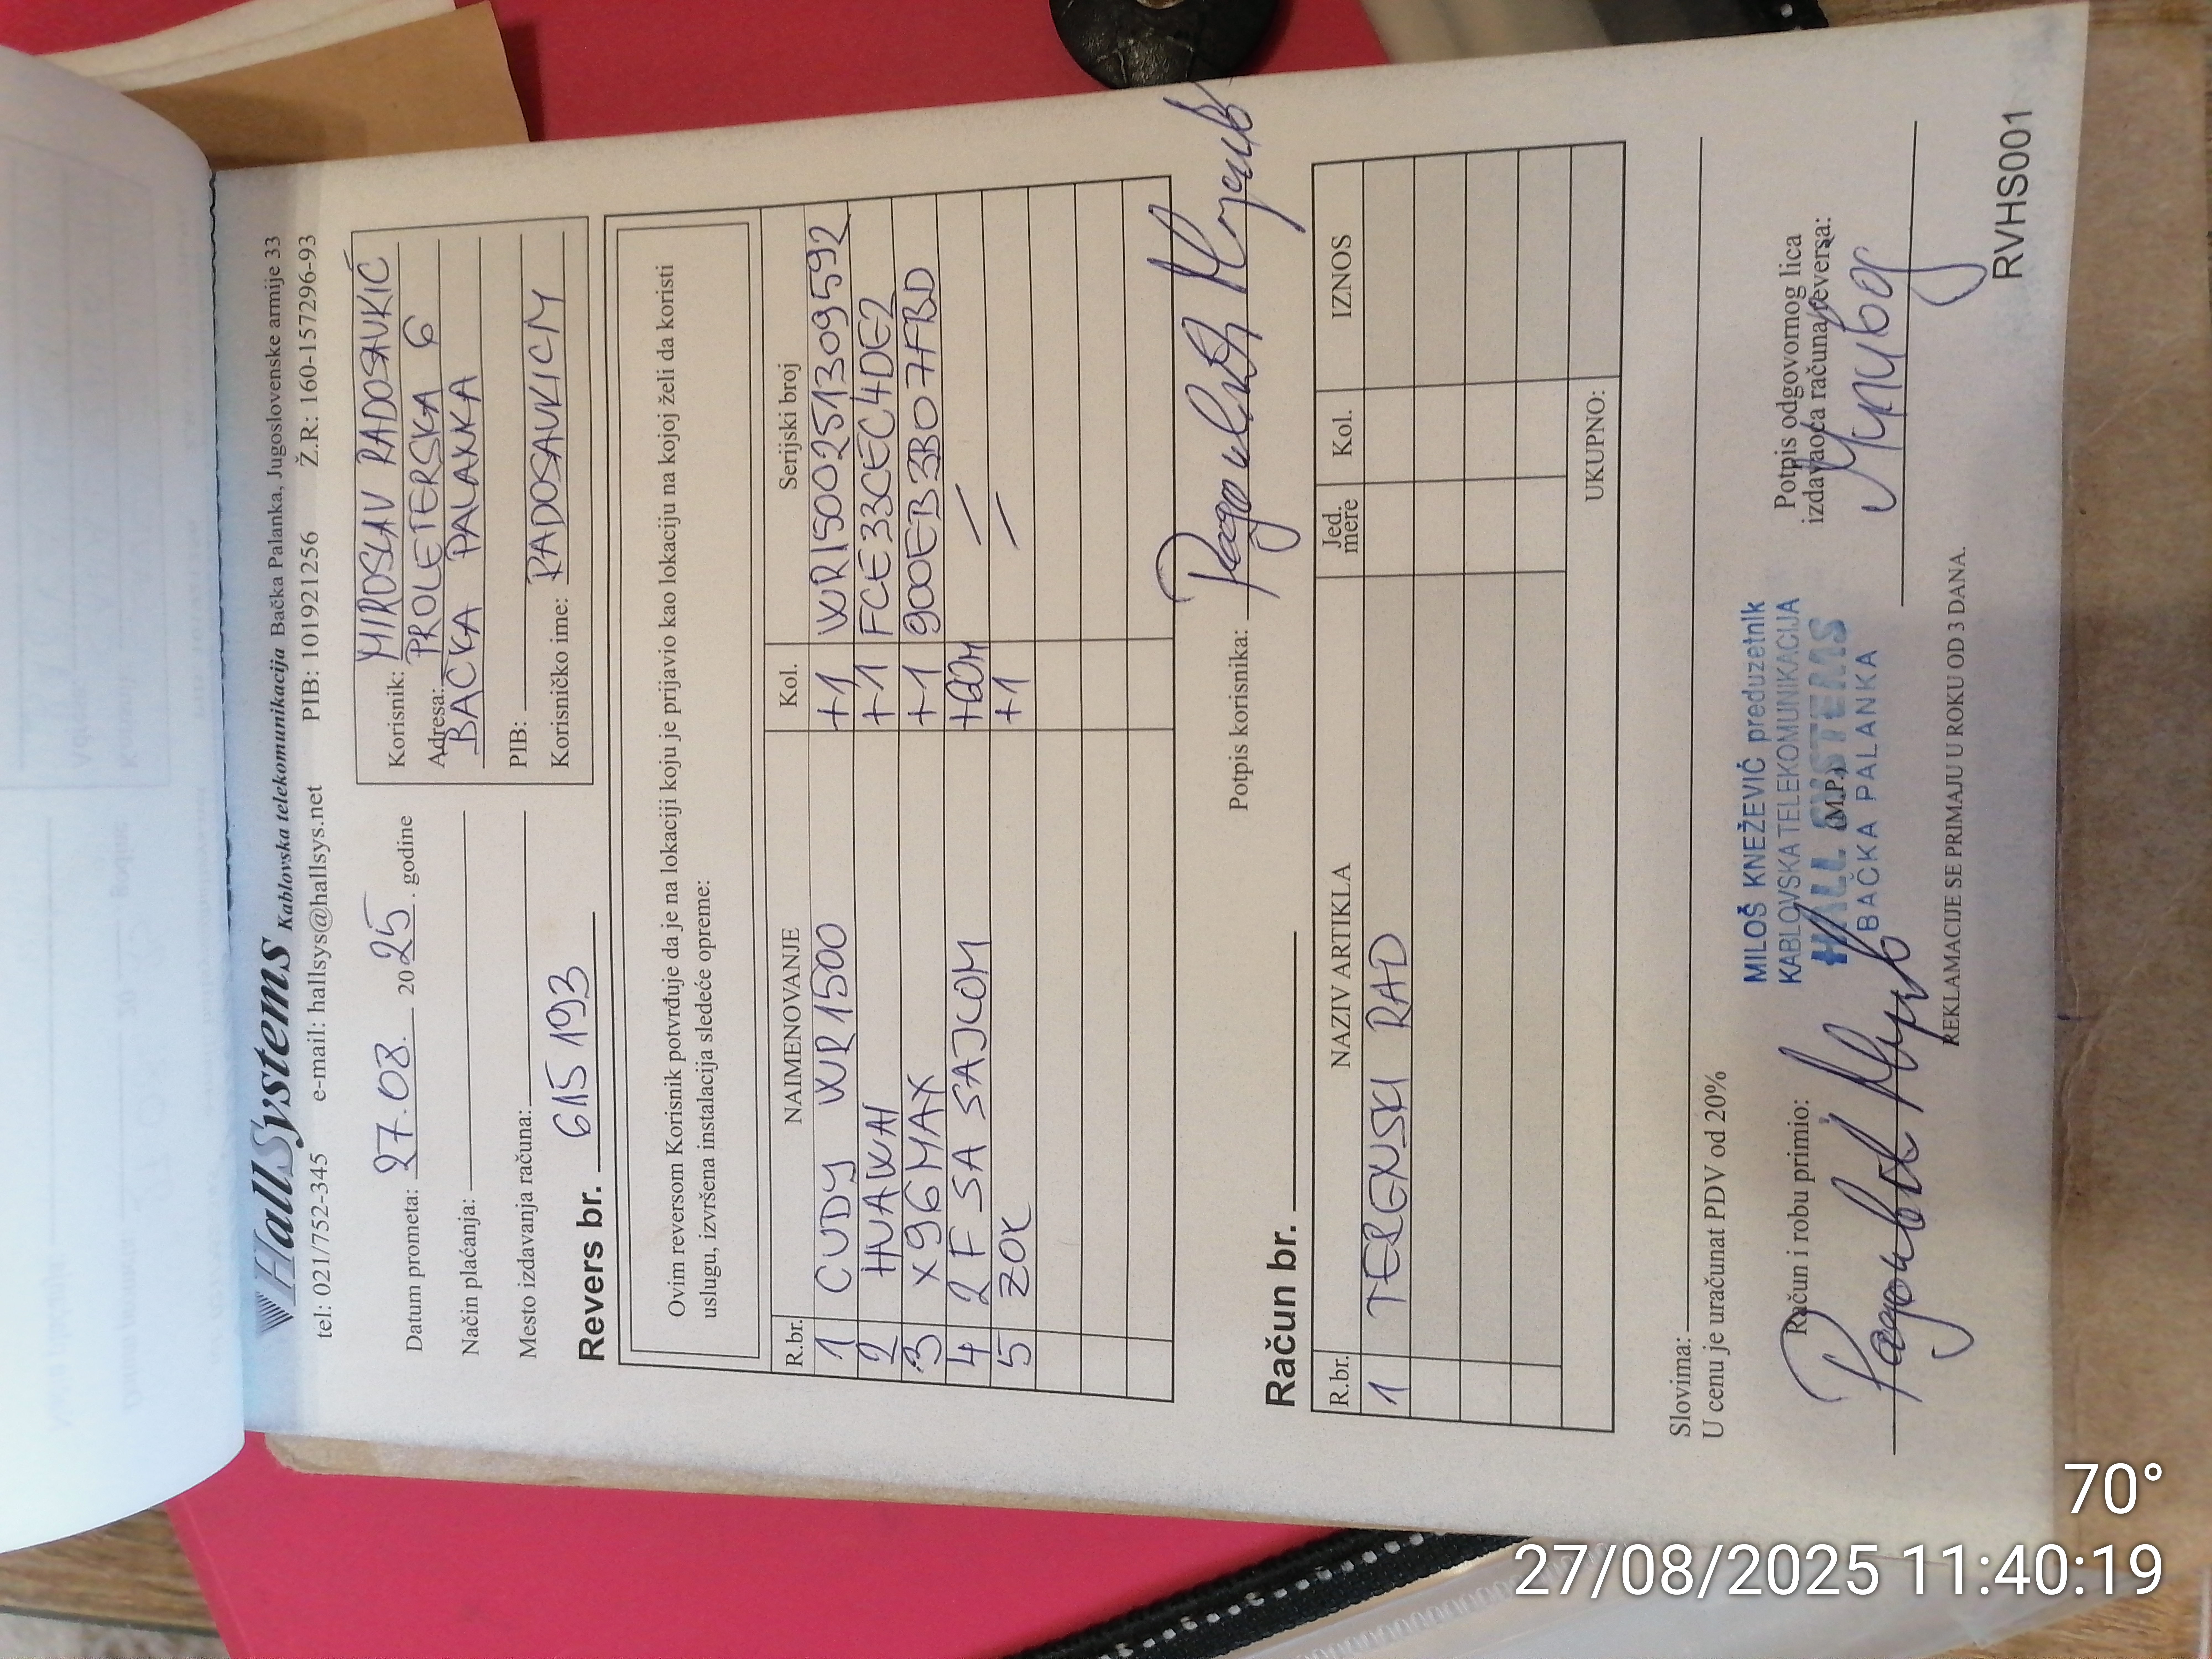 HallSystems Kablovska telekomunikacija Bačka Palanka, Jugoslovenske armije 33
tel: 021/752-345 e-mail: hallsys@hallsys.net PIB: 101921256 Ž.R.: 160-157296-93
Datum prometa: 27.08. 2025. godine
Način plaćanja:
Mesto izdavanja računa:
Korisnik: MIROSLAV RADOSAVKIĆ
Adresa: PROLETERSKA 6
BAČKA PALANKA
PIB:
Korisničko ime: RADOSAVKICM
Revers br. 615193
Ovim reversom Korisnik potvrđuje da je na lokaciji koju je prijavio kao lokaciju na kojoj želi da koristi
uslugu, izvršena instalacija sledeće opreme:
R.br. NAIMENOVANJE Kol. Serijski broj
1 CUDY WR1500 +1 WR15002513095592
2 HUAWAI +1 FCE33CEC4DE2
3 X96MAX +1 900EB3B07FBD
4 2F SA SAJLOM +60M
5 ZOK +1
Potpis korisnika:
Račun br.
R.br. NAZIV ARTIKLA Jed. mere Kol. IZNOS
1 TERENSKI RAD
UKUPNO:
Slovima:
U cenu je uračunat PDV od 20%
Račun i robu primio:
MILOŠ KNEŽEVIĆ preduzetnik
KABLOVSKA TELEKOMUNIKACIJA
HALL SYSTEMS
(M.P.)
BAČKA PALANKA
Potpis odgovornog lica
izdavaoca računa/reversa:
REKLAMACIJE SE PRIMAJU U ROKU OD 3 DANA.
RVHS001
70°
27/08/2025 11:40:19